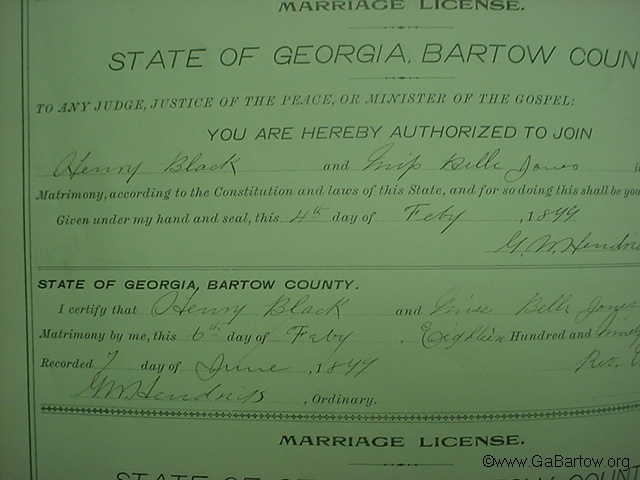 MARRIAGE LICENSE.
STATE OF GEORGIA, BARTOW COUN
TO ANY JUDGE, JUSTICE OF THE PEACE, OR MINISTER OF THE GOSPEL:
YOU ARE HEREBY AUTHORIZED TO JOIN
Henry Black and Miss Belle Jones i
Matrimony, according to the Constitution and laws of this State, and for so doing this shall be you
Given under my hand and seal, this 4th day of Feby , 1899
G. W. Hendri
STATE OF GEORGIA, BARTOW COUNTY.
I certify that Henry Black and Miss Belle Jones
Matrimony by me, this 6th day of Feby , Eighteen Hundred and ninety
Recorded 7 day of June , 1899 Rev.
GW Hendricks , Ordinary.
MARRIAGE LICENSE.
STATE OF GEORGIA, BARTOW COUNT
©www.GaBartow.org